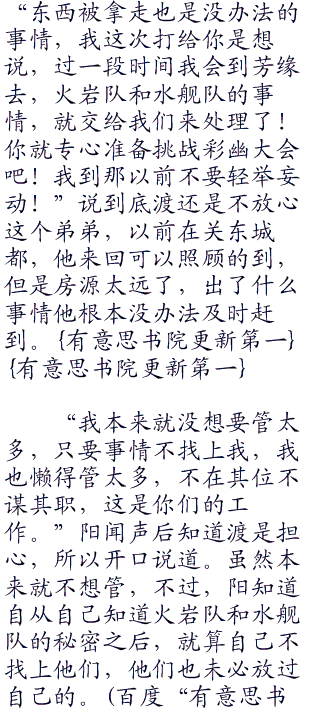 “东西被拿走也是没办法的
事情，我这次打给你是想
说，过一段时间我会到芳缘
去，火岩队和水舰队的事
情，就交给我们来处理了！
你就专心准备挑战彩幽大会
吧！我到那以前不要轻举妄
动！”说到底渡还是不放心
这个弟弟，以前在关东城
都，他来回可以照顾的到，
但是房源太远了，出了什么
事情他根本没办法及时赶
到。{有意思书院更新第一}
{有意思书院更新第一}
“我本来就没想要管太
多，只要事情不找上我，我
也懒得管太多，不在其位不
谋其职，这是你们的工
作。”阳闻声后知道渡是担
心，所以开口说道。虽然本
来就不想管，不过，阳知道
自从自己知道火岩队和水舰
队的秘密之后，就算自己不
找上他们，他们也未必放过
自己的。(百度“有意思书